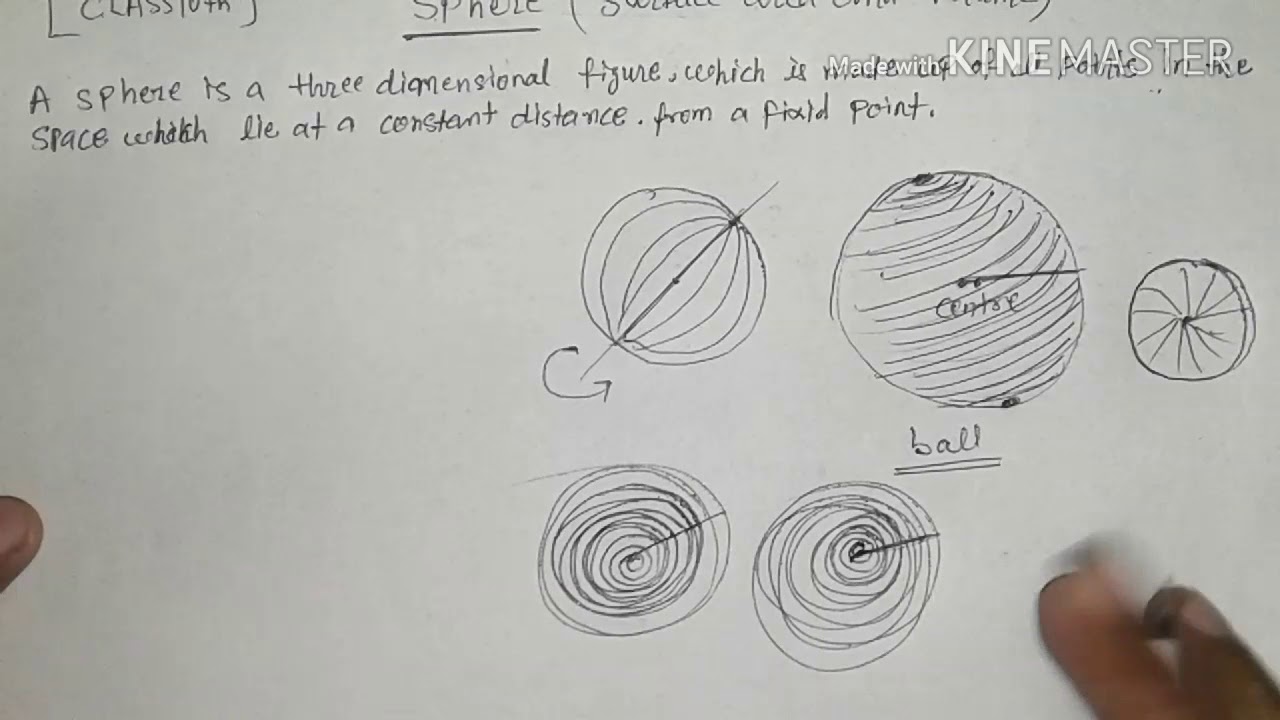 [CLASS 10th]
Sphere (Surface
A sphere is a three dimensional figure, which is made up of all points in the
space which lie at a constant distance. from a fixid point.
Made with KINEMASTER
centre
ball